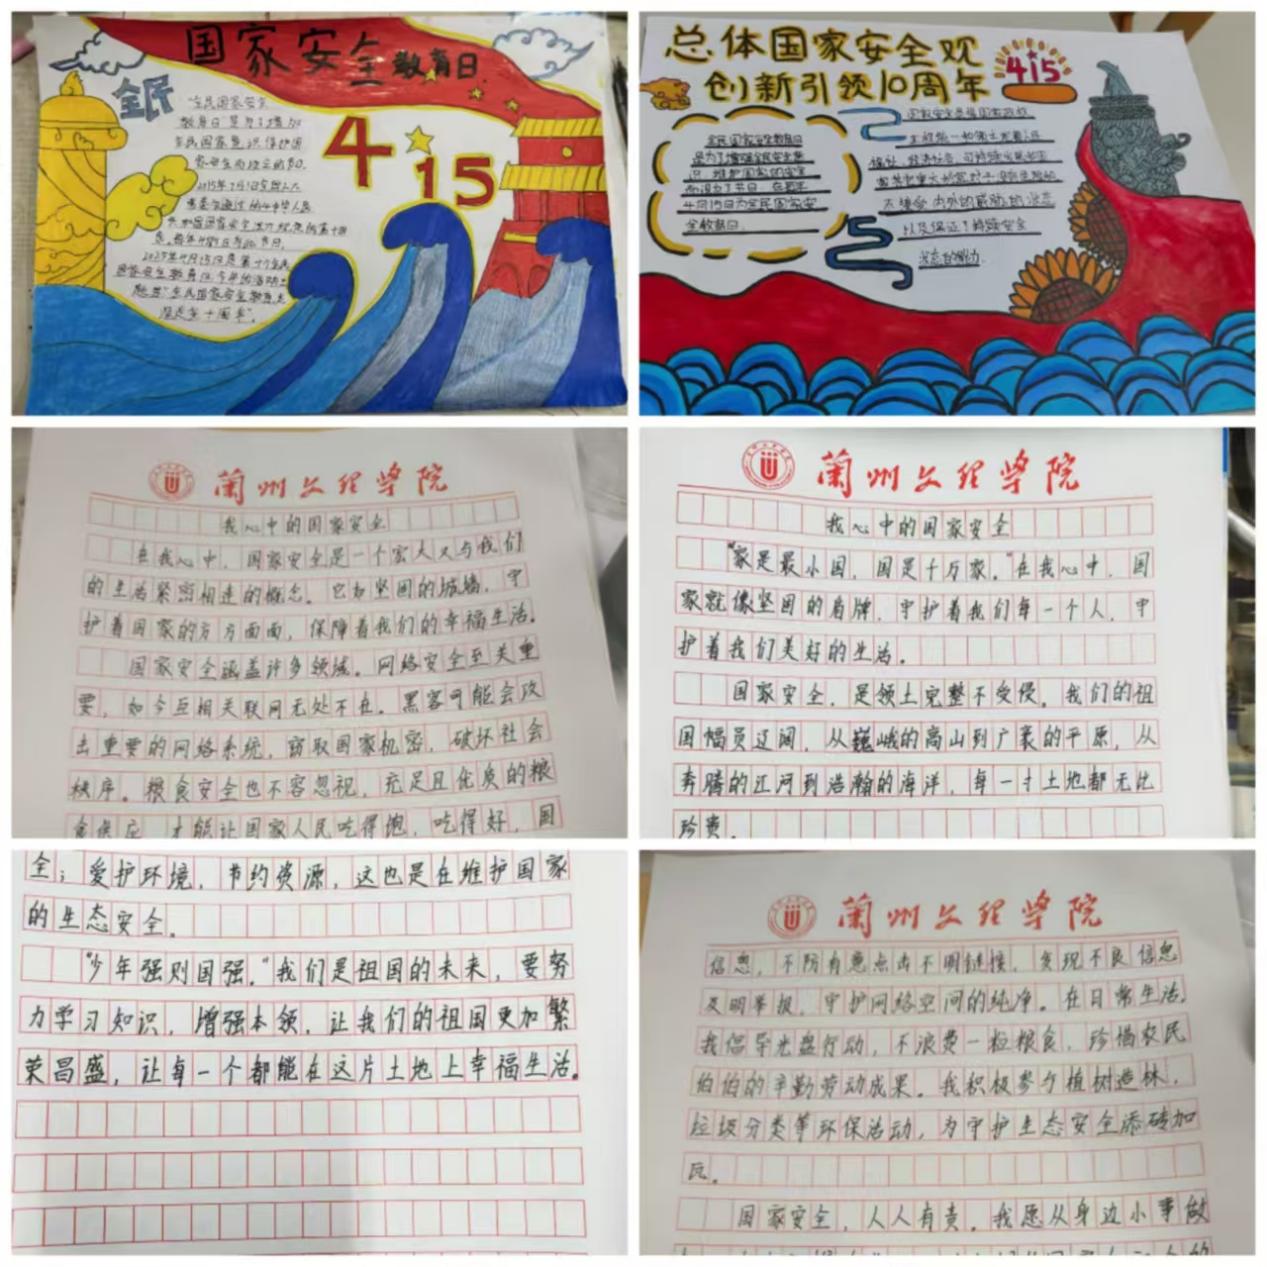 国家安全教育日
全民
4
15
全民国家安全
教育日是为了增加
全民国家意识维护国
家安全而设立的节日。
总体国家安全观
创新引领10周年
415
全民国家安全教育日
是为了增强全民安全意
识，维护国家的安全
而设为了节日，在每年
4月15日为全民国家安
全教育日。
以及保证了持续安全
状态的能力
兰州文理学院
我心中的国家安全
在我心中，国家安全是一个宏大又与我们
的生活紧密相连的概念。它如坚固的城墙，守
护着国家的方方面面，保障着我们的幸福生活。
国家安全涵盖许多领域。网络安全至关重
要，如今互相关联网无处不在。黑客可能会攻
击重要的网络系统，窃取国家机密，破坏社会
秩序。粮食安全也不容忽视，充足且优质的粮
食供应，才能让国家人民吃得饱，吃得好，国
兰州文理学院
我心中的国家安全
“家是最小国，国是千万家。”在我心中，国
家就像坚固的盾牌，守护着我们每一个人，守
护着我们美好的生活。
国家安全，是领土完整不受侵。我们的祖
国幅员辽阔，从巍峨的高山到广袤的平原，从
奔腾的江河到浩瀚的海洋，每一寸土地都无比
珍贵。
全；爱护环境，节约资源，这也是在维护国家
的生态安全。
“少年强则国强。”我们是祖国的未来，要努
力学习知识，增强本领，让我们的祖国更加繁
荣昌盛，让每一个都能在这片土地上幸福生活。
兰州文理学院
信息，不随意点击不明链接，发现不良信息
及明举报，守护网络空间的纯净。在日常生活，
我倡导光盘行动，不浪费一粒粮食，珍惜农民
伯伯的辛勤劳动成果。我积极参与植树造林，
垃圾分类等环保活动，为守护生态安全添砖加
瓦。
国家安全，人人有责。我愿从身边小事做